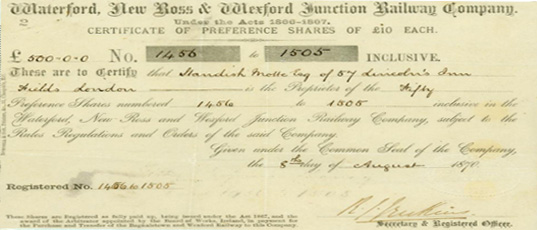 Waterford, New Ross & Wexford Junction Railway Company.
Under the Acts 1860-1867.
2
CERTIFICATE OF PREFERENCE SHARES OF £10 EACH.
£ 500-0-0 No. 1456 to 1505 INCLUSIVE.
These are to Certify that Standish Motte Esq of 57 Lincoln's Inn
Fields London is the Proprietor of the Fifty
Preference Shares numbered 1456 to 1505 inclusive in the
Waterford, New Ross and Wexford Junction Railway Company, subject to the
Rules Regulations and Orders of the said Company.
Given under the Common Seal of the Company,
the 8th day of August 1870.
Registered No. 1456 to 1505
These Shares are Registered as fully paid up, being issued under the Act 1867, and the
award of the Arbitrator appointed by the Board of Works, Ireland, in payment for
the Purchase and Transfer of the Bagenalstown and Wexford Railway to this Company.
Secretary & Registered Officer.